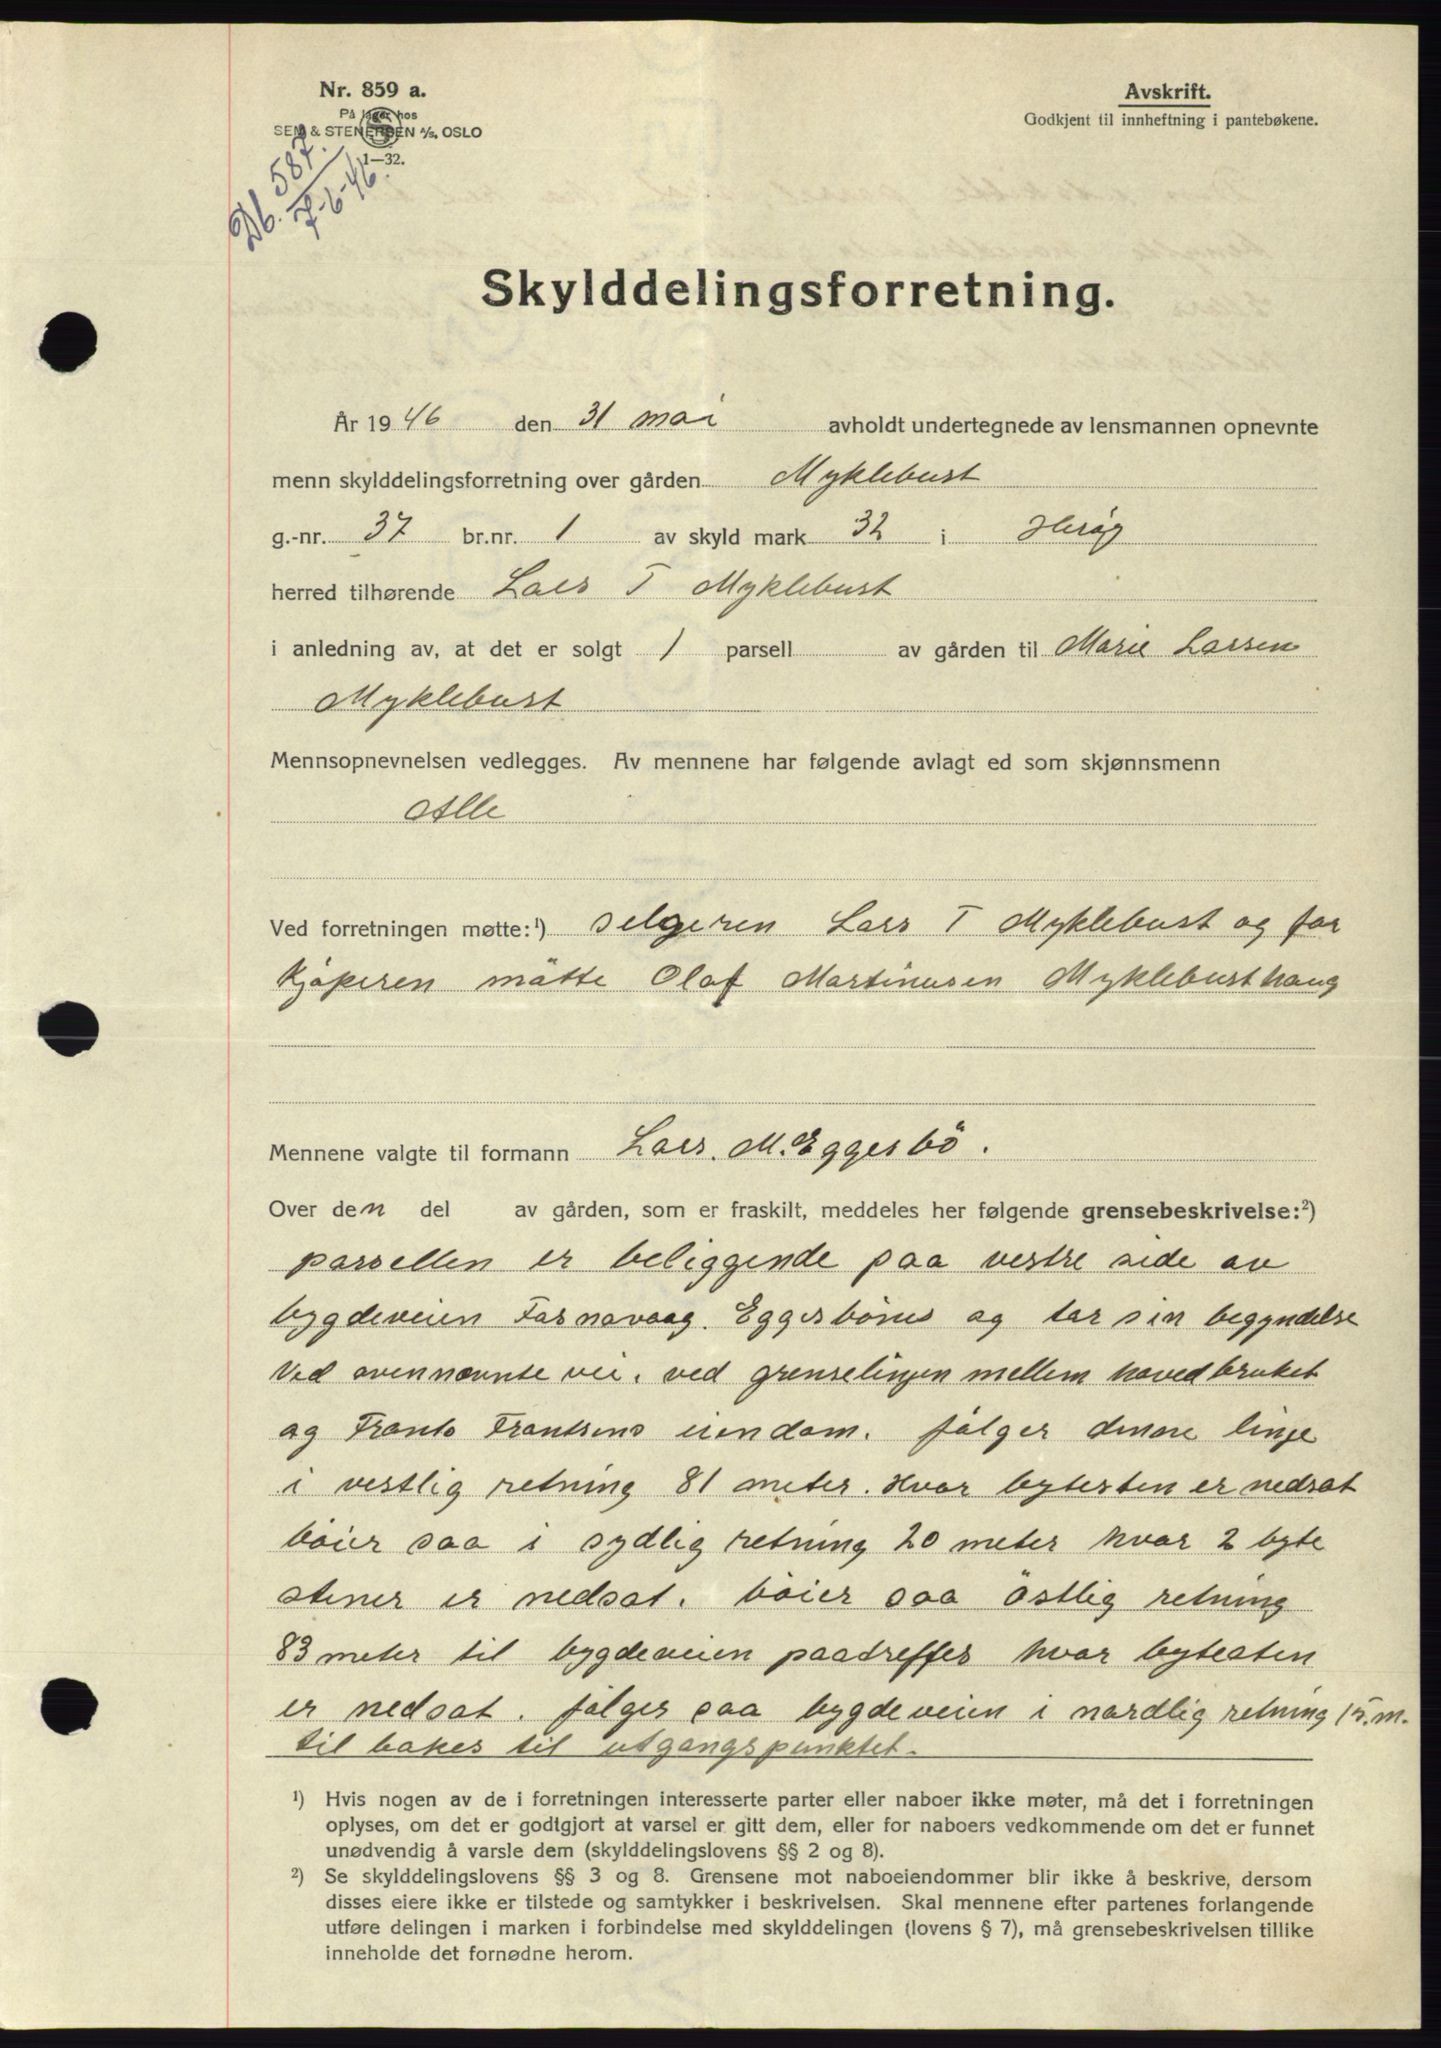 Nr. 859 a.
På lager hos
SEM & STENERSEN A/S, OSLO
1—32.
Db. 587.
7-6-46.
Avskrift.
Godkjent til innheftning i pantebøkene.
Skylddelingsforretning.
År 1946 den 31 mai avholdt undertegnede av lensmannen opnevnte
menn skylddelingsforretning over gården Myklebust
g.-nr. 37 br.nr. 1 av skyld mark 32 i Herøy
herred tilhørende Lars T Myklebust
i anledning av, at det er solgt 1 parsell av gården til Marie Larsen
Myklebust
Mennsopnevnelsen vedlegges. Av mennene har følgende avlagt ed som skjønnsmenn
Alle
Ved forretningen møtte:¹) selgeren Lars T Myklebust og for
kjøperen møtte Olaf Martinusen Myklebusthaug
Mennene valgte til formann Lars. M. Eggesbö.
Over den del av gården, som er fraskilt, meddeles her følgende grensebeskrivelse:²)
parsellen er beliggende paa vestre side av
bygdeveien Fosnavaag. Eggesbönes og tar sin begyndelse
ved ovennevnte vei. ved grenselinjen mellem hovedbruket
og Frants Frantsens eiendom. følger denne linje
i vestlig retning 81 meter. Hvor bytesten er nedsat
böier saa i sydlig retning 20 meter hvor 2 byte
stener er nedsat. böier saa östlig retning
83 meter til bygdeveien paatreffes hvor bytesten
er nedsat. følger saa bygdeveien i nordlig retning 15.m.
til bakes til utgangspunktet.
¹) Hvis nogen av de i forretningen interesserte parter eller naboer ikke møter, må det i forretningen
oplyses, om det er godtgjort at varsel er gitt dem, eller for naboers vedkommende om det er funnet
unødvendig å varsle dem (skylddelingslovens §§ 2 og 8).
²) Se skylddelingslovens §§ 3 og 8. Grensene mot naboeiendommer blir ikke å beskrive, dersom
disses eiere ikke er tilstede og samtykker i beskrivelsen. Skal mennene efter partenes forlangende
utføre delingen i marken i forbindelse med skylddelingen (lovens § 7), må grensebeskrivelsen tillike
inneholde det fornødne herom.